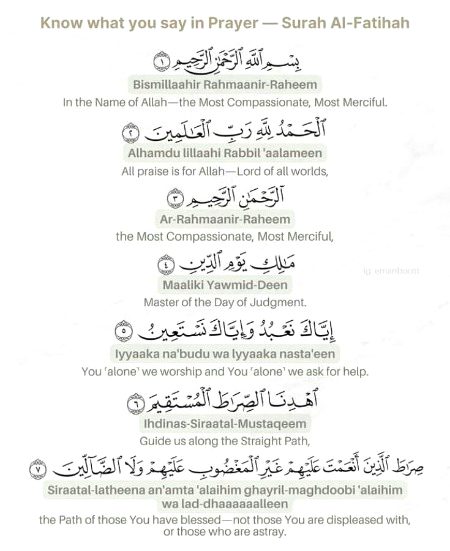 Know what you say in Prayer — Surah Al-Fatihah
بِسْمِ ٱللَّهِ ٱلرَّحْمَٰنِ ٱلرَّحِيمِ ١
Bismillaahir Rahmaanir-Raheem
In the Name of Allah—the Most Compassionate, Most Merciful.
ٱلْحَمْدُ لِلَّهِ رَبِّ ٱلْعَٰلَمِينَ ٢
Alhamdu lillaahi Rabbil 'aalameen
All praise is for Allah—Lord of all worlds,
ٱلرَّحْمَٰنِ ٱلرَّحِيمِ ٣
Ar-Rahmaanir-Raheem
the Most Compassionate, Most Merciful,
مَٰلِكِ يَوْمِ ٱلدِّينِ ٤
Maaliki Yawmid-Deen
Master of the Day of Judgment.
إِيَّاكَ نَعْبُدُ وَإِيَّاكَ نَسْتَعِينُ ٥
Iyyaaka na'budu wa Iyyaaka nasta'een
You ˹alone˺ we worship and You ˹alone˺ we ask for help.
ٱهْدِنَا ٱلصِّرَٰطَ ٱلْمُسْتَقِيمَ ٦
Ihdinas-Siraatal-Mustaqeem
Guide us along the Straight Path,
صِرَٰطَ ٱلَّذِينَ أَنْعَمْتَ عَلَيْهِمْ غَيْرِ ٱلْمَغْضُوبِ عَلَيْهِمْ وَلَا ٱلضَّآلِّينَ ٧
Siraatal-latheena an'amta 'alaihim ghayril-maghdoobi 'alaihim
wa lad-dhaaaaaalleen
the Path of those You have blessed—not those You are displeased with,
or those who are astray.